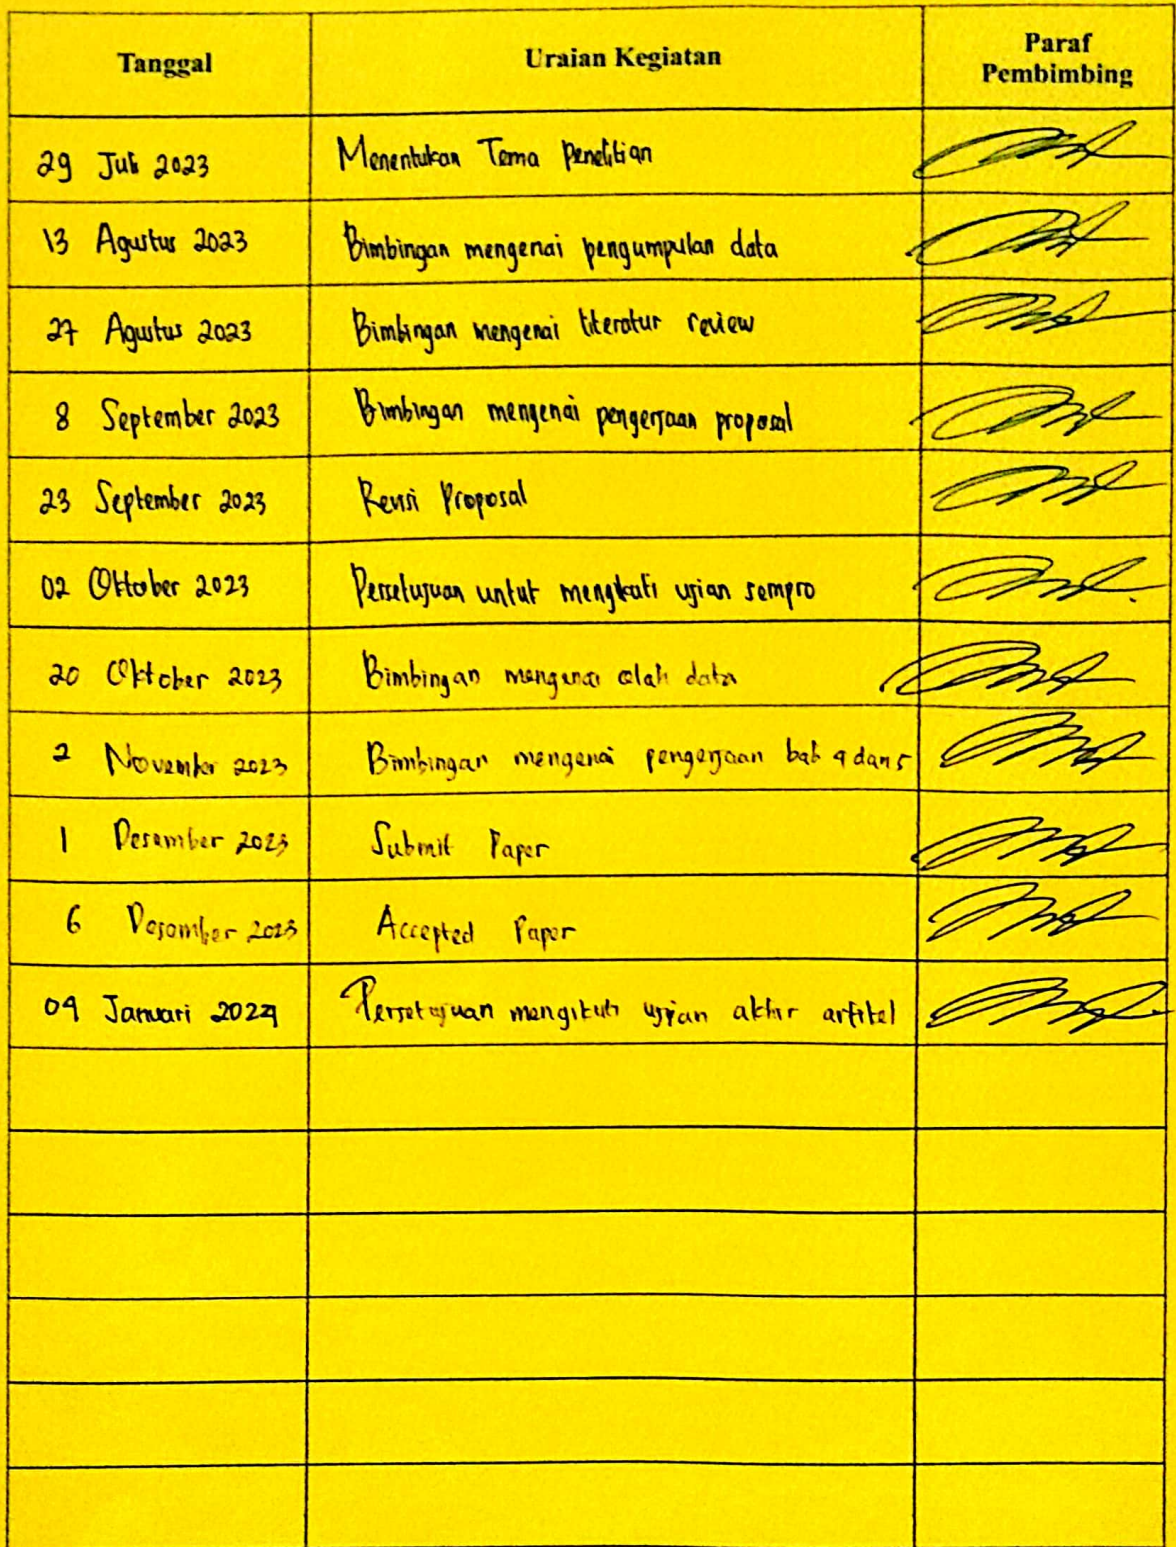 Tanggal Uraian Kegiatan Paraf
Pembimbing
29 Juli 2023 Menentukan Tema Penelitian
13 Agustus 2023 Bimbingan mengenai pengumpulan data
27 Agustus 2023 Bimbingan mengenai literatur review
8 September 2023 Bimbingan mengenai pengerjaan proposal
23 September 2023 Revisi Proposal
02 Oktober 2023 Persetujuan untuk mengikuti ujian sempro
20 Oktober 2023 Bimbingan mengenai olah data
2 November 2023 Bimbingan mengenai pengerjaan bab 4 dan 5
1 Desember 2023 Submit Paper
6 Desember 2023 Accepted Paper
04 Januari 2024 Persetujuan mengikuti ujian akhir artikel